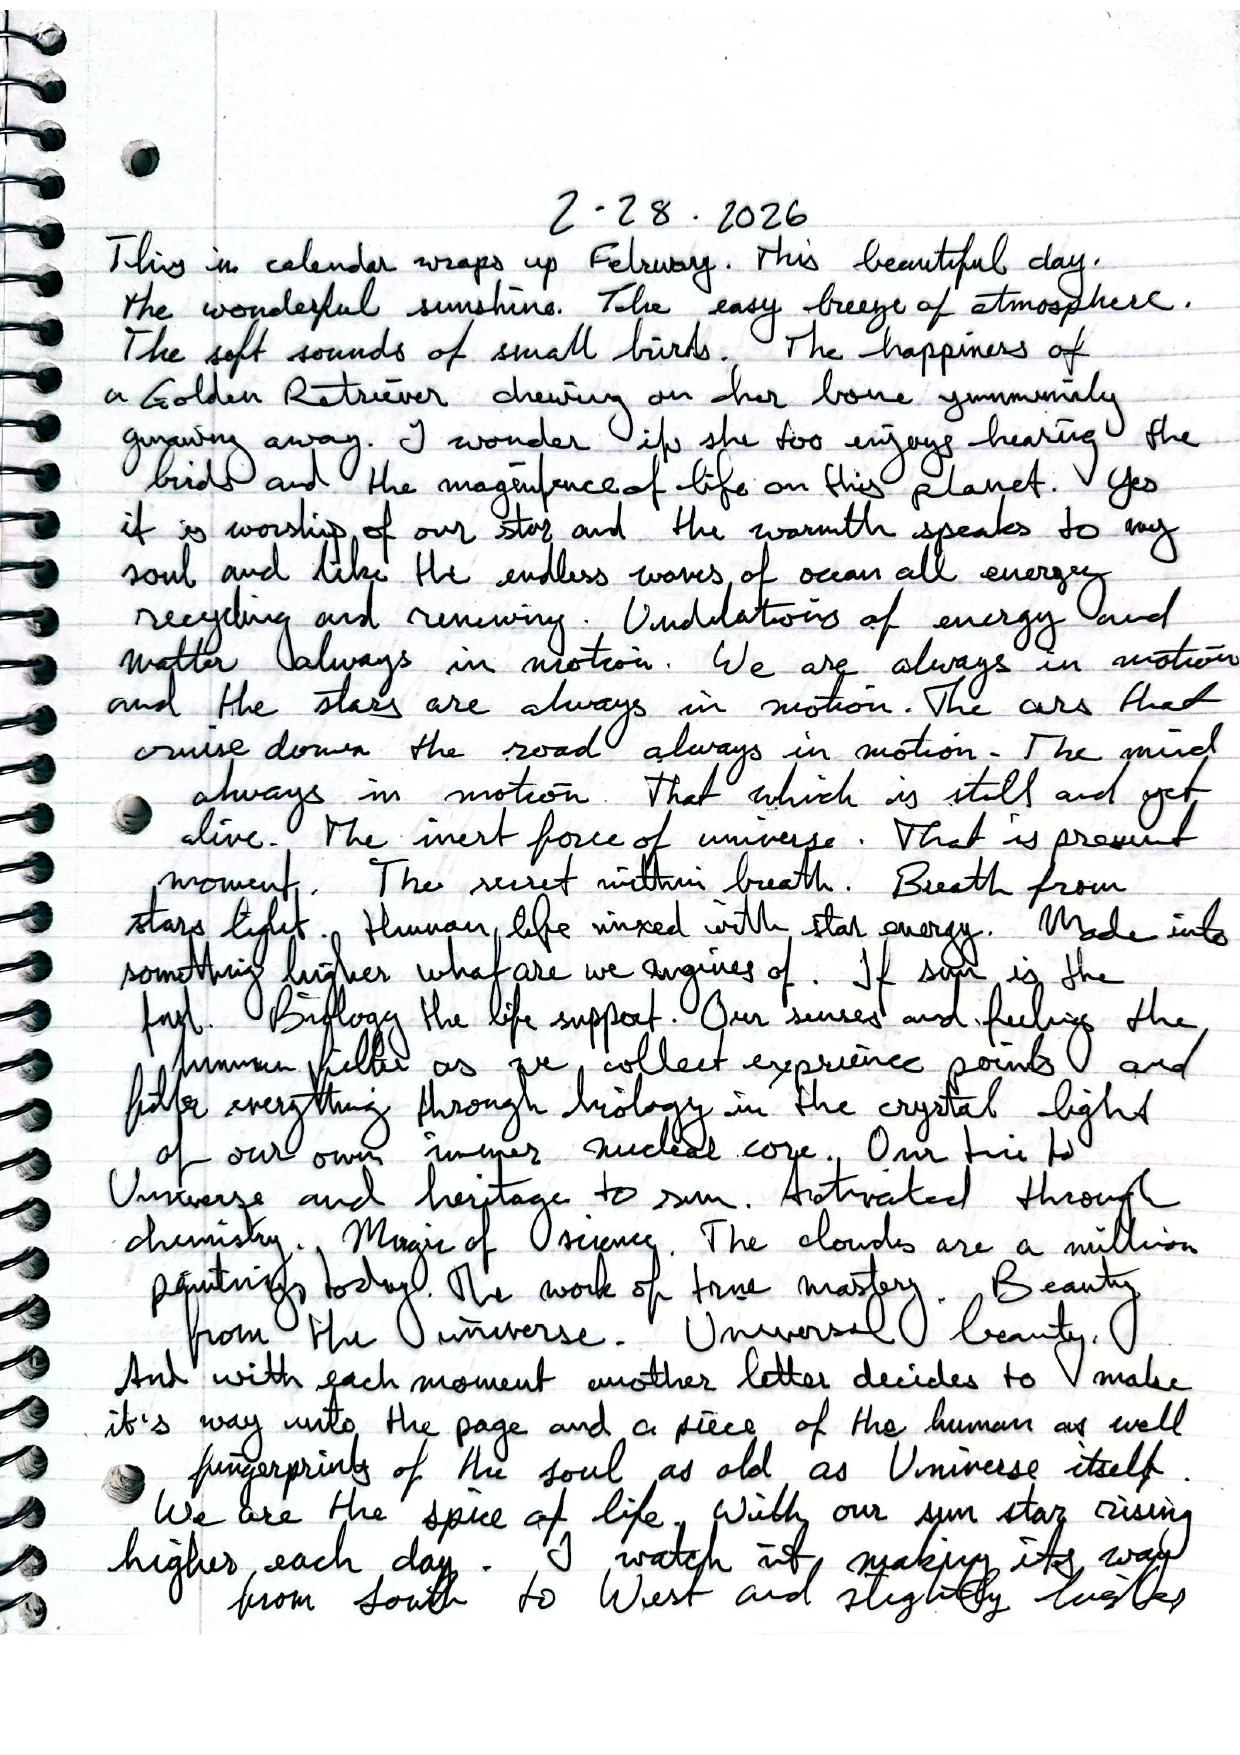 2-28.2026
This in calendar wraps up February. This beautiful day.
The wonderful sunshine. The easy breeze of atmosphere.
The soft sounds of small birds. The happiness of
a Golden Retriever chewing on her bone yummmily
gnawing away. I wonder if she too enjoys hearing the
birds and the magnifence of life on this planet. Yes
it is worship of our star and the warmth speaks to my
soul and like the endless waves of ocean all energy
recycling and renewing. Undulations of energy and
matter always in motion. We are always in motion
and the stars are always in motion. The cars that
cruise down the road always in motion. The mind
always in motion. That which is still and yet
alive. The inert force of universe. That is present
moment. The secret within breath. Breath from
stars light. Human life mixed with star energy. Made into
something higher what are we engines of. If sun is the
fuel. Biology the life support. Our senses and feelings the
human filter as we collect experience points and
filter everything through biology in the crystal light
of our own inner nuclear core. Our tie to
Universe and heritage to sun. Activated through
chemistry. Magic of science. The clouds are a million
paintings today. The work of true mastery. Beauty
from the universe. Universal beauty.
And with each moment another letter decides to make
it's way unto the page and a piece of the human as well
fingerprints of the soul as old as Universe itself.
We are the spice of life. With our sun star rising
higher each day. I watch it making its way
from South to West and slightly higher